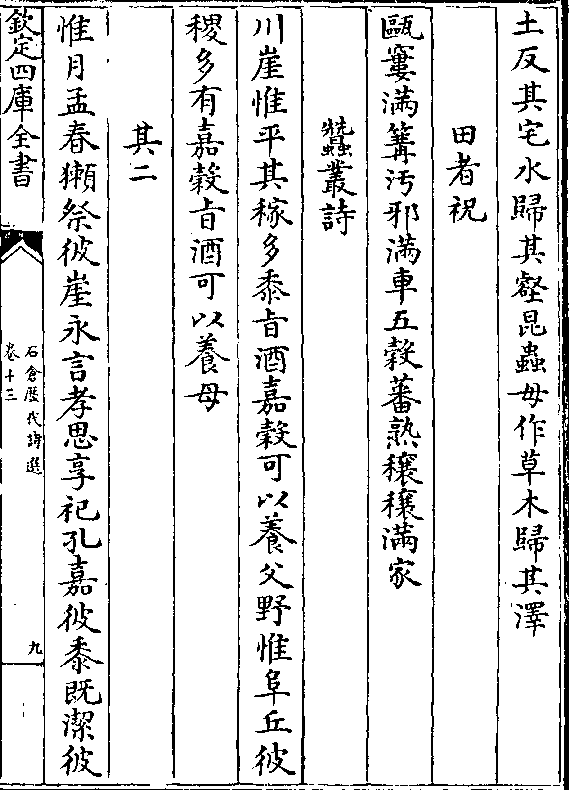 土反其宅水歸其壑昆蟲毋作草木歸其澤
田者祝
甌窶滿篝汚邪滿車五穀蕃熟穰穰滿家
蠶叢詩
川崖惟平其稼多黍旨酒嘉穀可以養父野惟阜丘彼
稷多有嘉穀旨酒可以養母
其二
惟月孟春獺祭彼崖永言孝思享祀孔嘉彼黍既潔彼
欽定四庫全書
石倉歷代詩選
卷十三
九